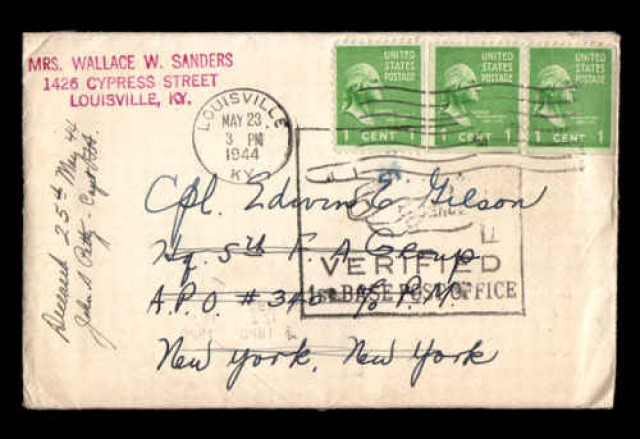 MRS. WALLACE W. SANDERS
1426 CYPRESS STREET
LOUISVILLE, KY.
LOUISVILLE
MAY 23
3 PM
1944
KY.
UNITED STATES POSTAGE
1 CENT 1
UNITED STATES POSTAGE
1 CENT 1
UNITED STATES POSTAGE
1 CENT 1
Cpl. Edwin E. Gilson
Hq. 5th F. A. Group
A.P.O. # 346 c/o P.M.
New York, New York
VERIFIED
1st BASE POST OFFICE
Deceased 25th May 44
John S